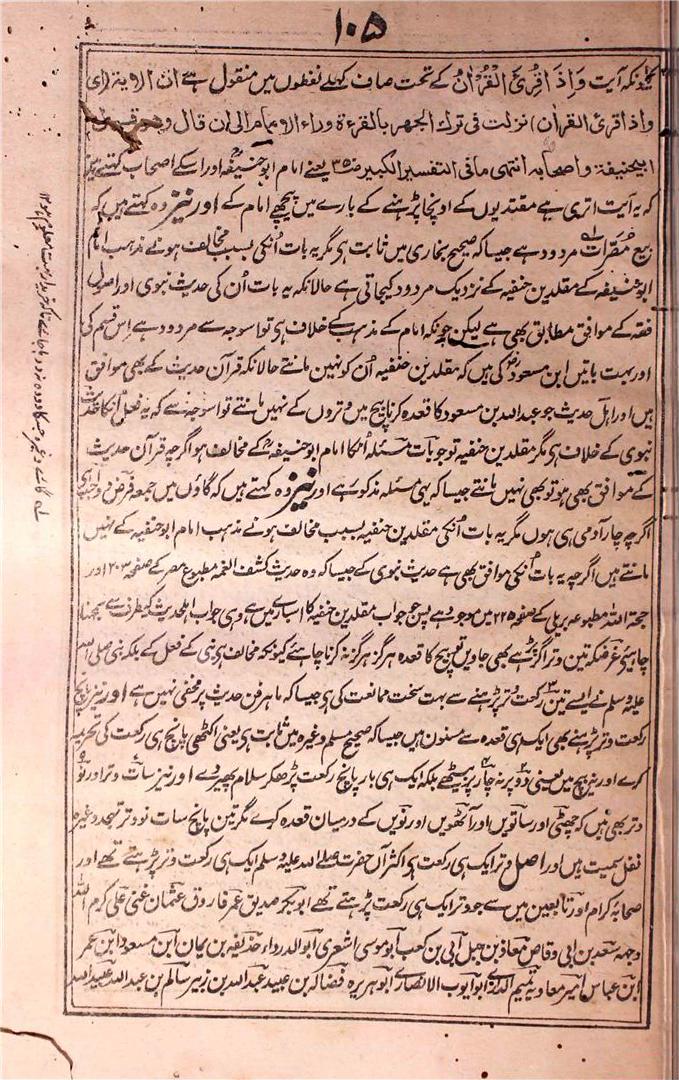 ۱۰۵
کیونکہ آیت وَاِذَا قُرِئَ الْقُرْاٰنُ کے تحت صاف کھلے لفظوں میں منقول ہے ان الاویة (ای
واذا قرئ القراٰن) نزلت فی ترک الجہر بالقرءۃ وراء الامام الی ان قال وھو قول
ابیحنیفۃ واصحابہ انتہی مافی التفسیر الکبیر ص۳۵ یعنے امام ابوحنیفہؒ اور اسکے اصحاب کہتے ہیں
کہ یہ آیت اتری ہے مقتدیوں کے اونچا پڑہنے کے بارے میں پیچھے امام کے اور نیز وہ کہتے ہیں کہ
بیع مُصَرّات مردود ہے جیسا کہ صحیح بخاری میں ثابت ہی مگر یہ بات اُنکی بسبب مخالف ہونے مذہب امام
ابوحنیفہ کے مقلدین حنفیہ کے نزدیک مردود کیجاتی ہے حالانکہ یہ بات اُن کی حدیث نبوی اور اصول
فقہ کے موافق مطابق بھی ہے لیکن چونکہ امام کے مذہب کے خلاف ہی تو اسوجہ سے مردود ہے اِس قسم کی
اور بہت باتیں ابن مسعودؓ کی ہیں کہ مقلدین حنفیہ اُن کو نہیں مانتے حالانکہ قرآن حدیث کے بھی موافق
ہیں اور اہل حدیث جو عبداللہ بن مسعود کا قعدہ کرنا بیچ میں وتروں کے نہیں مانتے تو اسوجہ سے کہ یہ فعل اُنکا حدیث
نبوی کے خلاف ہی مگر مقلدین حنفیہ تو جو بات مسئلہ اُنکا امام ابوحنیفہؒ کے مخالف ہو اگرچہ قرآن حدیث
کے موافق بھی ہو تو بھی نہیں مانتے جیسا کہ یہی مسئلہ مذکور ہے اور نیز وہ کہتے ہیں کہ گاؤں میں جمعہ فرض و واجب ہی
اگرچہ چار آدمی ہی ہوں مگر یہ بات اُنکی مقلدین حنفیہ بسبب مخالف ہونے مذہب امام ابوحنیفہ کے نہیں
مانتے ہیں اگرچہ یہ بات اُنکی موافق بھی ہے حدیث نبوی کے جیسا کہ وہ حدیث کشف الغمہ مطبوع مصر کے صفحہ ۲۰۳ اور
حجۃ اللہ مطبوعہ بریلی کے صفحہ ۲۲۵ میں موجود ہے پس جو جواب مقلدین حنفیہ کا اسبارے میں ہے وہی جواب اہلحدیث کیطرف سے سمجھنا
چاہیئے غرضکہ تین وتر اگر پڑہے بھی جاویں تو بیچ کا قعدہ ہرگز ہرگز نہ کرنا چاہئے کیونکہ مخالف ہی نبی کے فعل کے بلکہ نبی صلی اللہ
علیہ وسلم نے ایسے تین۳ رکعت وتر پڑہنے سے بہت سخت ممانعت کی ہی جیسا کہ ماہر فن حدیث پر مخفی نہیں ہے اور نیز پانچ
رکعت وتر پڑہنے بھی ایک ہی قعدہ سے مسنون ہیں جیسا کہ صحیح مسلم وغیرہ میں ثابت ہی یعنی اکٹھی پانچ ہی رکعت کی تحریمہ
کرے اور نہ بیچ میں یعنی دو۲ پر نہ چار۴ پر بیٹھے بلکہ ایک ہی بار پانچ رکعت پڑھکر سلام پھیر دے اور نیز سات وتر اور نو۹
وتر بھی ہیں کہ چھٹی اور ساتویں اور آٹھویں اور نویں کے درمیان قعدہ کرے مگر تین پانچ سات نو وتر تہجد وغیرہ
نفل سمیت ہیں اور اصل وتر ایک ہی رکعت ہی اکثر آں حضرت صلے اللہ علیہ وسلم ایک ہی رکعت وتر پڑہتے تھے اور
صحابہ کرام اور تابعین میں سے جو وتر ایک ہی رکعت پڑہتے تھے ابوبکر صدیق عمر فاروق عثمان غنی علی کرم اللہ
وجہہ سعد بن ابی وقاص معاذ بن جبل ابی بن کعب ابو موسی اشعری ابوالدرداء حذیفہ بن یمان ابن مسعود ابن عمر
ابن عباس امیر معاویہ تمیم الداری ابو ایوب الانصاری ابو ہریرہ فضالہ بن عبید عبداللہ بن زبیر سالم بن عبداللہ عبیداللہ